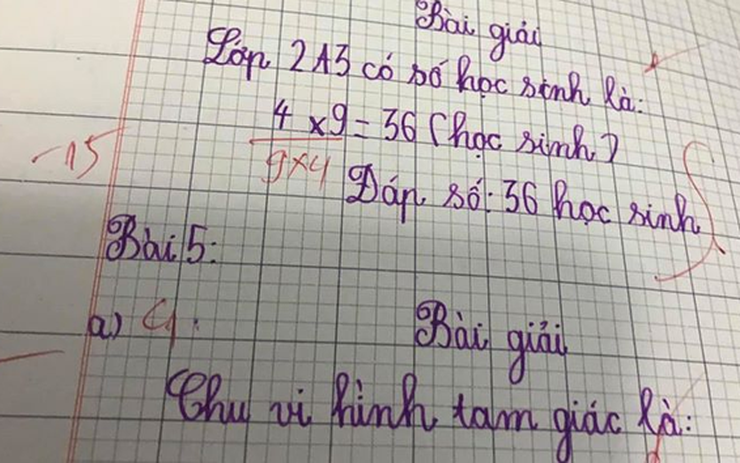 Bài giải
Lớp 2A3 có số học sinh là:
4 x 9 = 36 (học sinh)
9x4
-15
Đáp số: 36 học sinh
Bài 5:
a)
Bài giải
Chu vi hình tam giác là: